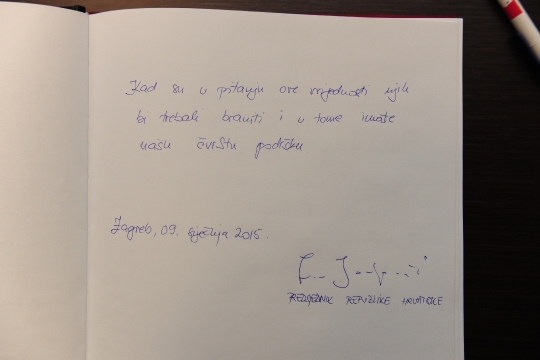 Kad su u pitanju ove vrijednosti njih
bi trebali braniti i u tome imate
našu čvrstu podršku.
Zagreb, 09. siječnja 2015.
PREDSJEDNIK REPUBLIKE HRVATSKE